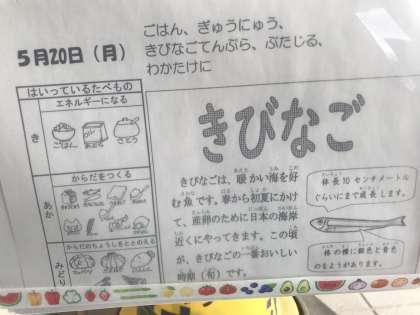 ５月20日（月）
ごはん、ぎゅうにゅう、
きびなごてんぷら、ぶたじる、
わかたけに
はいっているたべもの
エネルギーになる
き
ごはん
さとう
からだをつくる
あか
からだのちょうしをととのえる
みどり
きびなご
きびなごは、暖かい海を好
む魚です。春から初夏にかけ
て、産卵のために日本の海岸
近くにやってきます。この頃
が、きびなごの一番おいしい
時期（旬）です。
体長10センチメートル
ぐらいにまで成長します。
体の横に銀色と青色
のもようがあります。